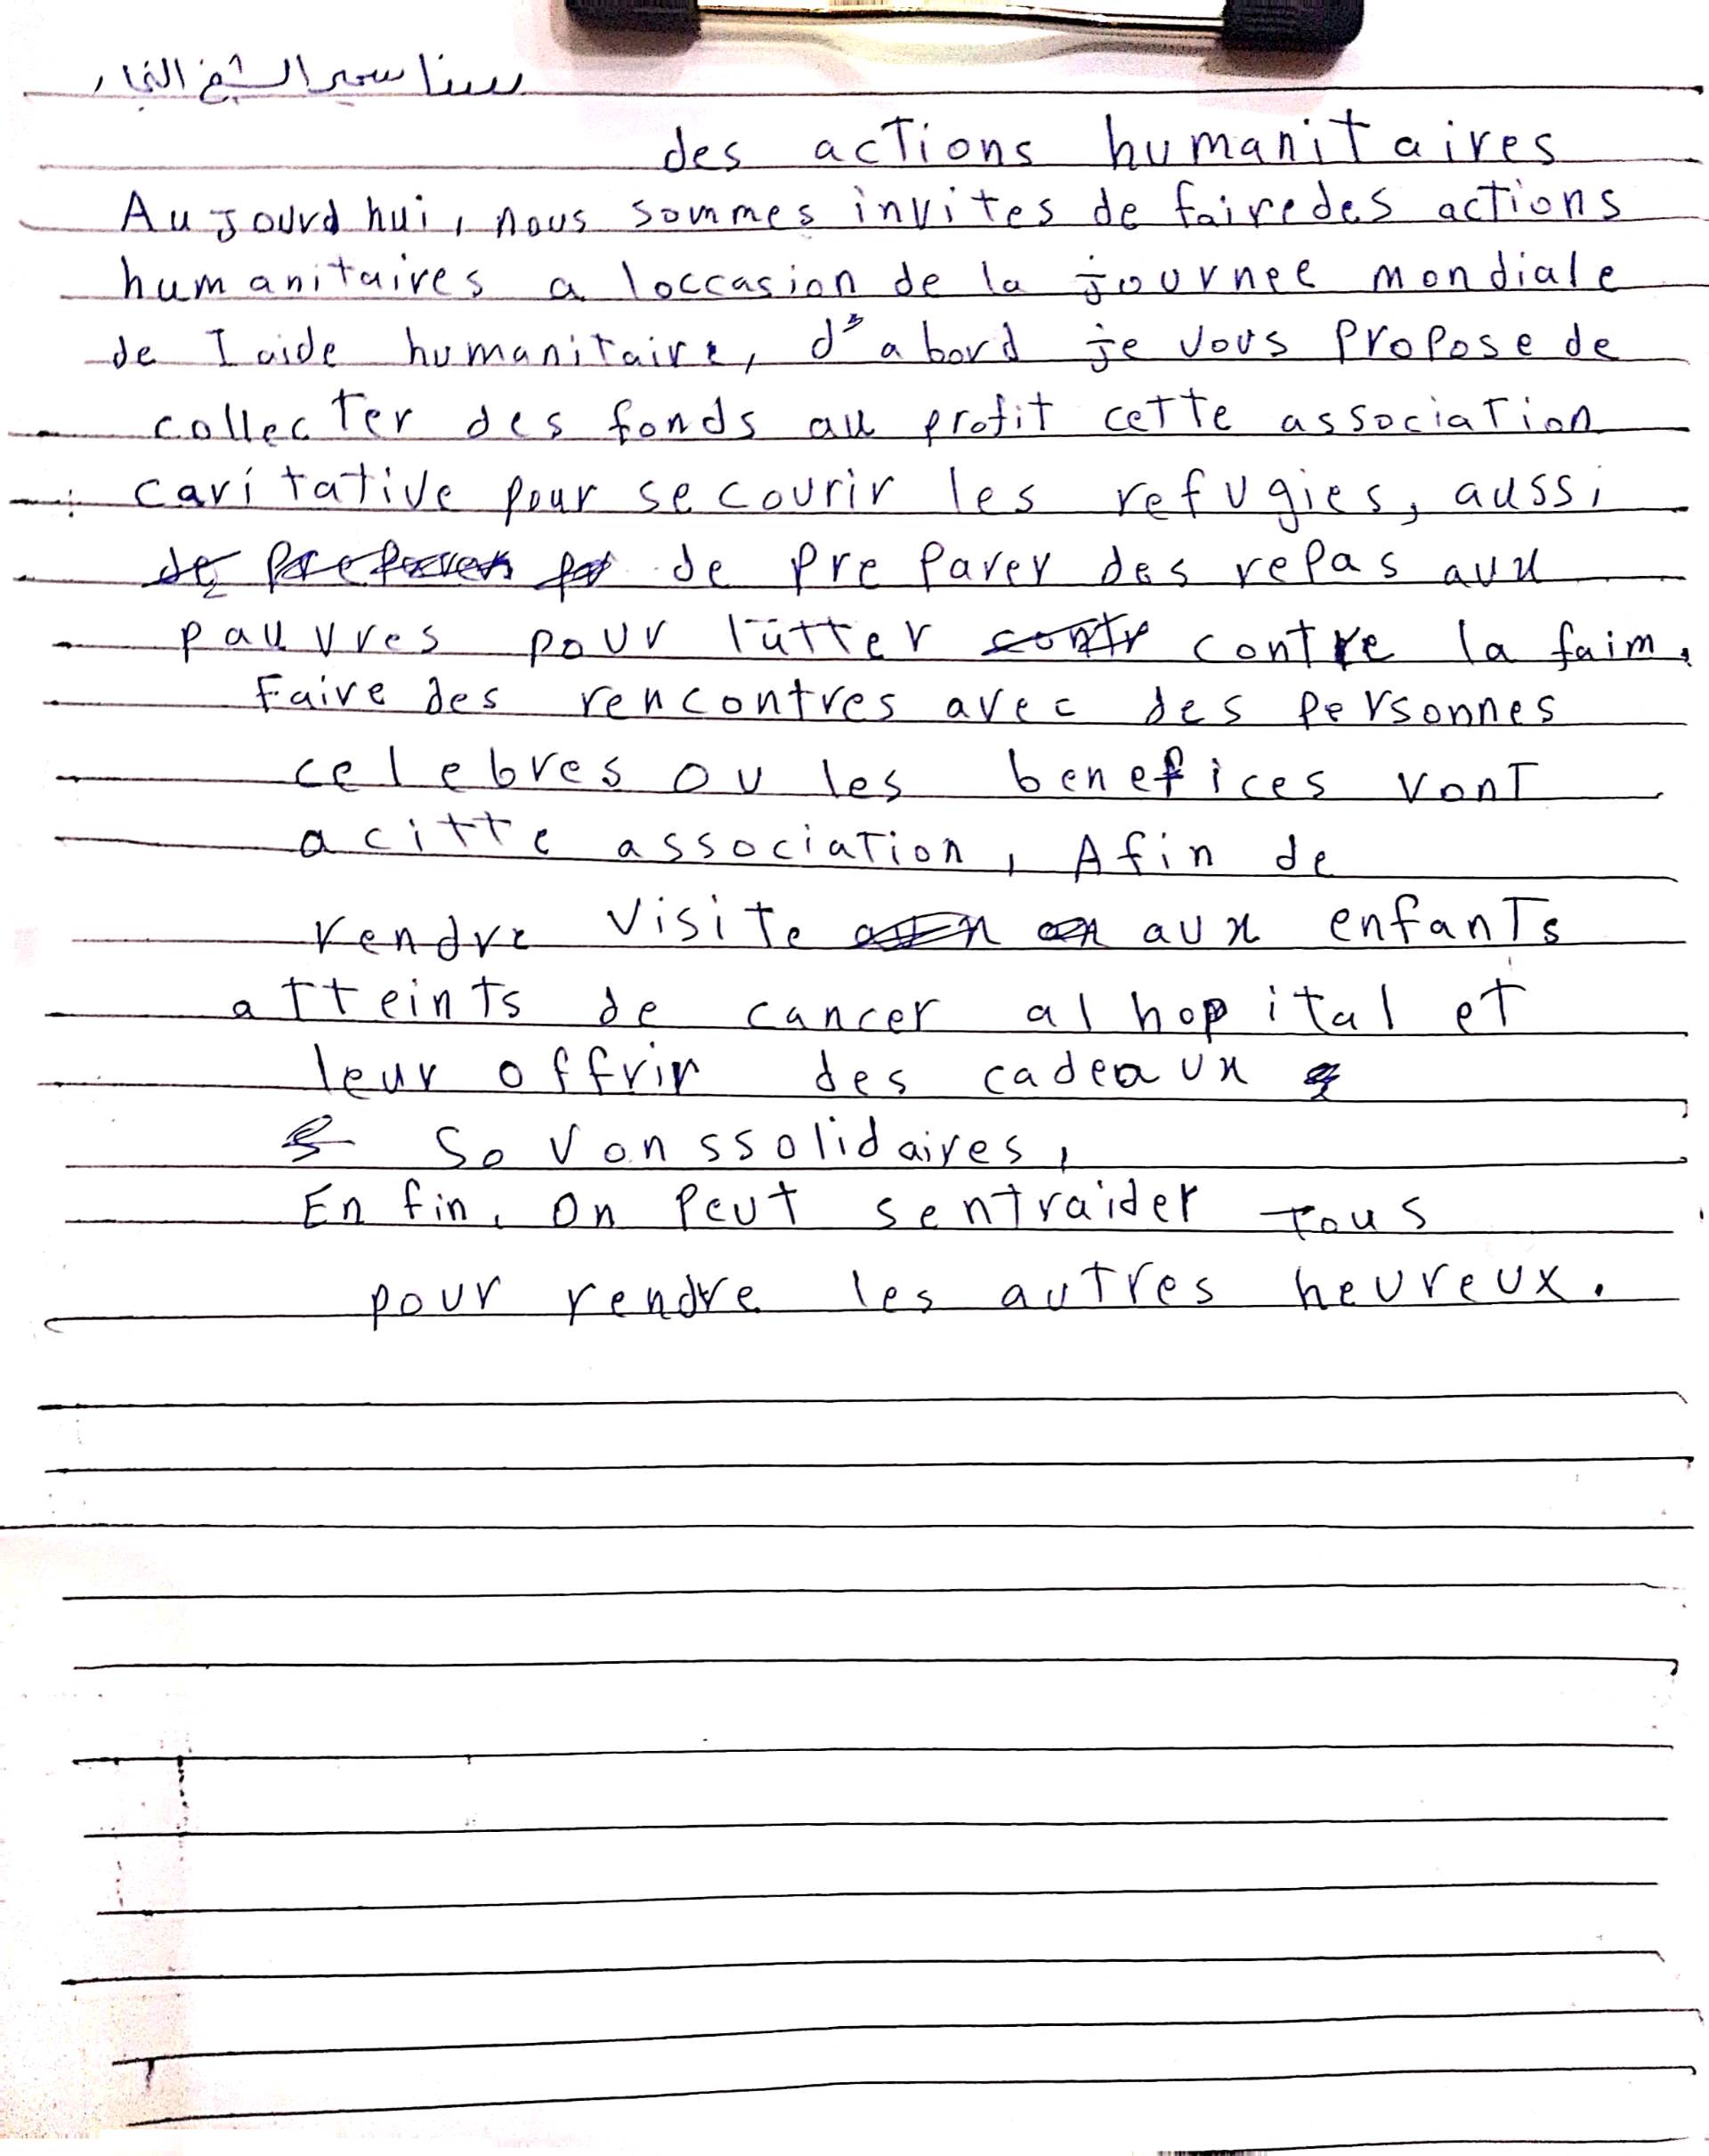 سينا سمير الشيخ النجار
des actions humanitaires
Aujourd hui, nous sommes invites de faire des actions
humanitaires a loccasion de la journee mondiale
de l aide humanitaire, d'abord je vous propose de
collecter des fonds au profit cette association
caritative pour secourir les refugies, aussi
de preparer des repas aux
pauvres pour lutter contre la faim,
Faire des rencontres avec des personnes
celebres ou les benefices vont
a citte association, Afin de
rendre visite aux enfants
atteints de cancer al hopital et
leur offrir des cadeaux
So vons solidaires,
En fin, on peut sentraider tous
pour rendre les autres heureux.